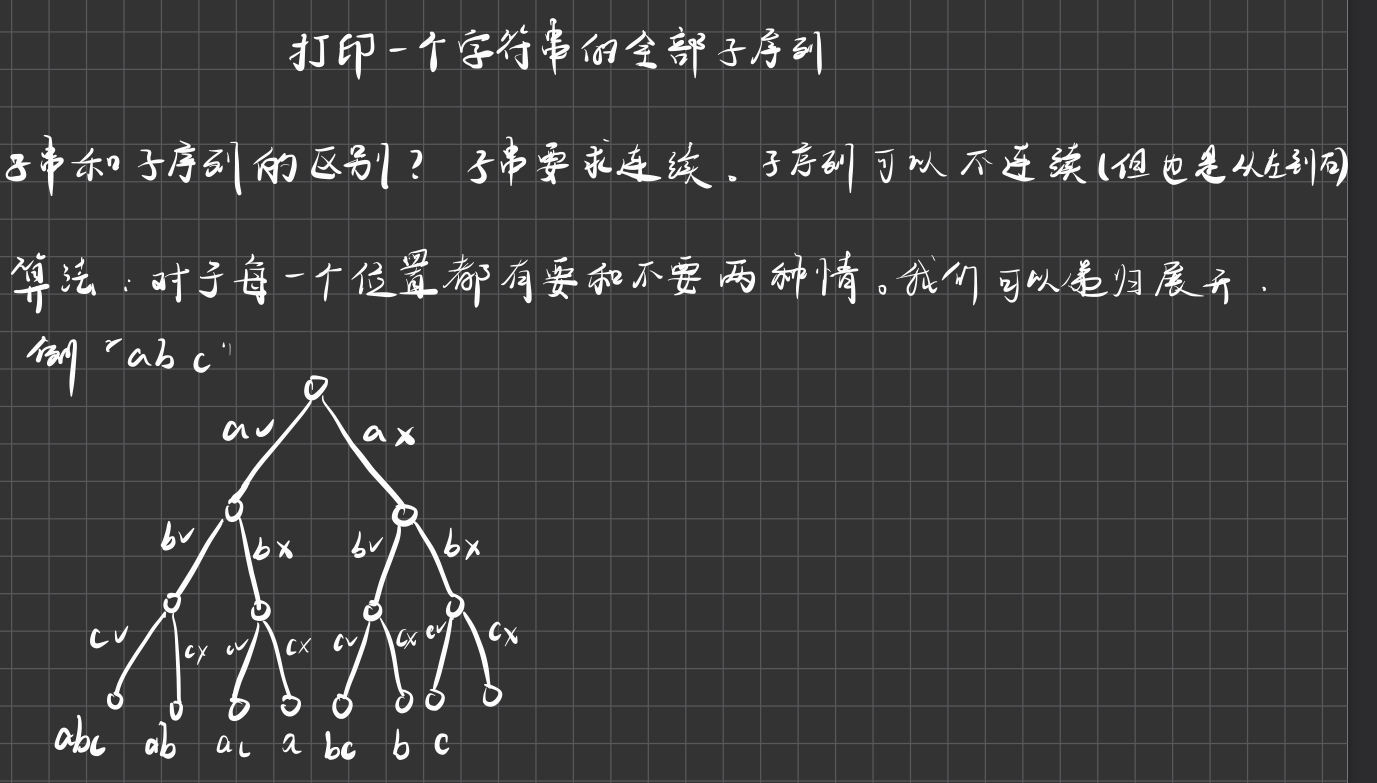 打印一个字符串的全部子序列
子串和子序列的区别? 子串要求连续。子序列可以不连续(但也是从左到右)
算法:对于每一个位置都有要和不要两种情。我们可以递归展开.
例 "abc"
a✓ a×
b✓ b× b✓ b×
c✓ c× c✓ c× c✓ c× c✓ c×
abc ab ac a bc b c